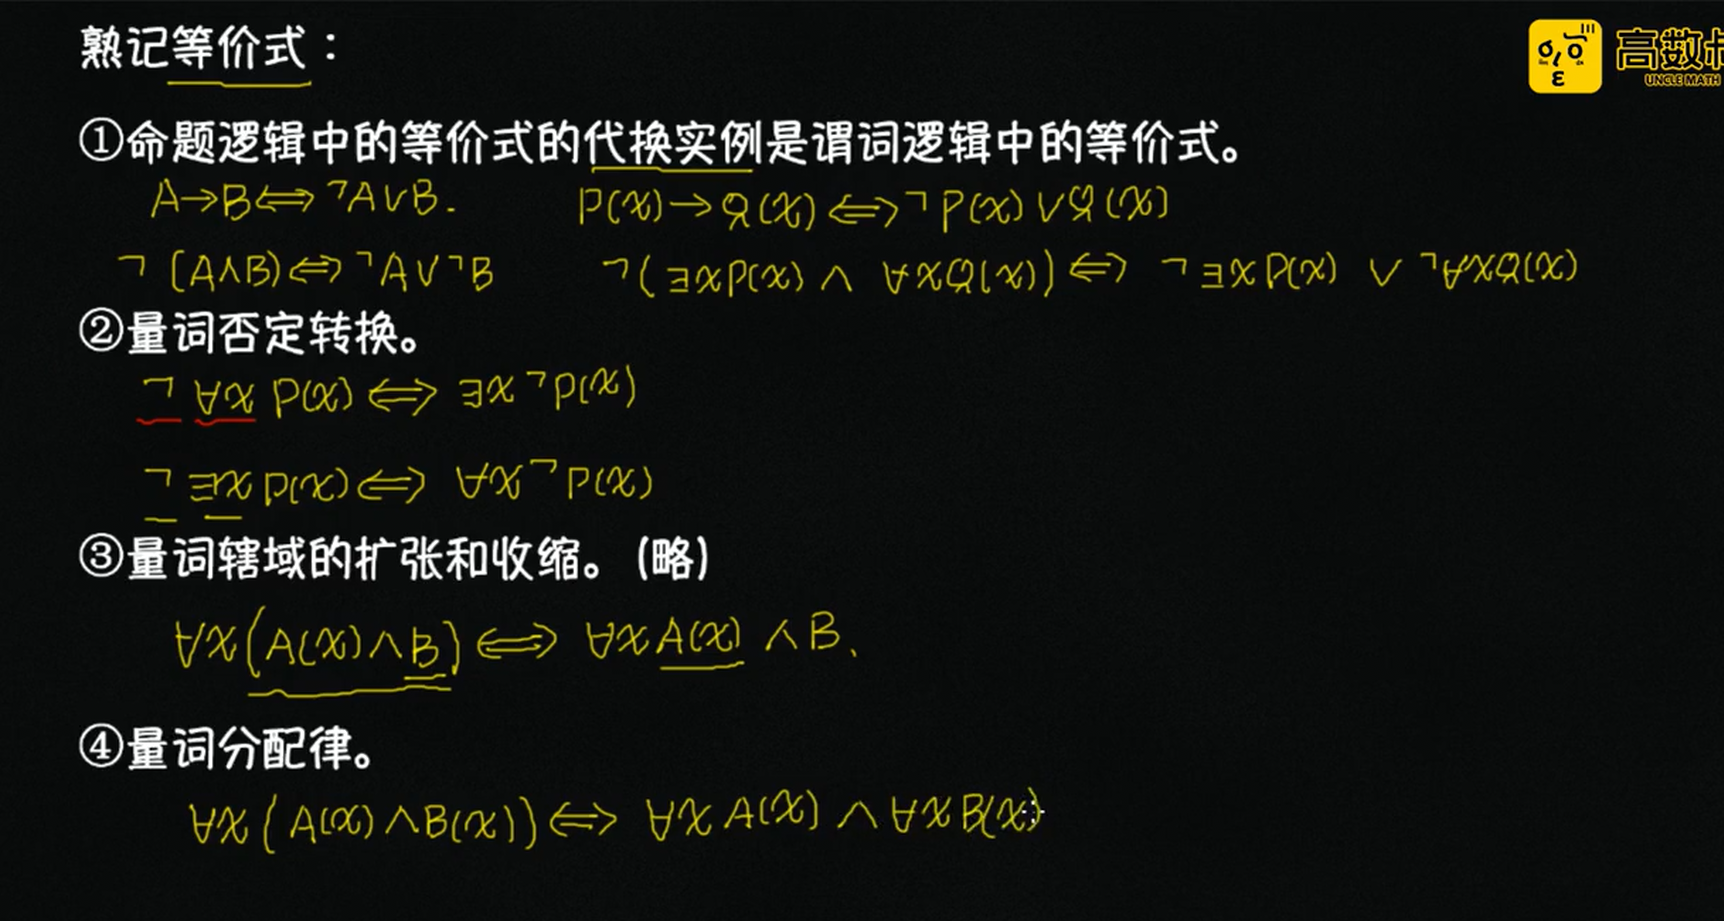 熟记等价式：
高数叔
UNCLE MATH
①命题逻辑中的等价式的代换实例是谓词逻辑中的等价式。
A→B⇔¬A∨B. P(x)→Q(x)⇔¬P(x)∨Q(x)
¬(A∧B)⇔¬A∨¬B ¬(∃xP(x)∧∀xQ(x))⇔¬∃xP(x)∨¬∀xQ(x)
②量词否定转换。
¬∀xP(x)⇔∃x¬P(x)
¬∃xP(x)⇔∀x¬P(x)
③量词辖域的扩张和收缩。(略)
∀x(A(x)∧B)⇔∀xA(x)∧B、
④量词分配律。
∀x(A(x)∧B(x))⇔∀xA(x)∧∀xB(x)